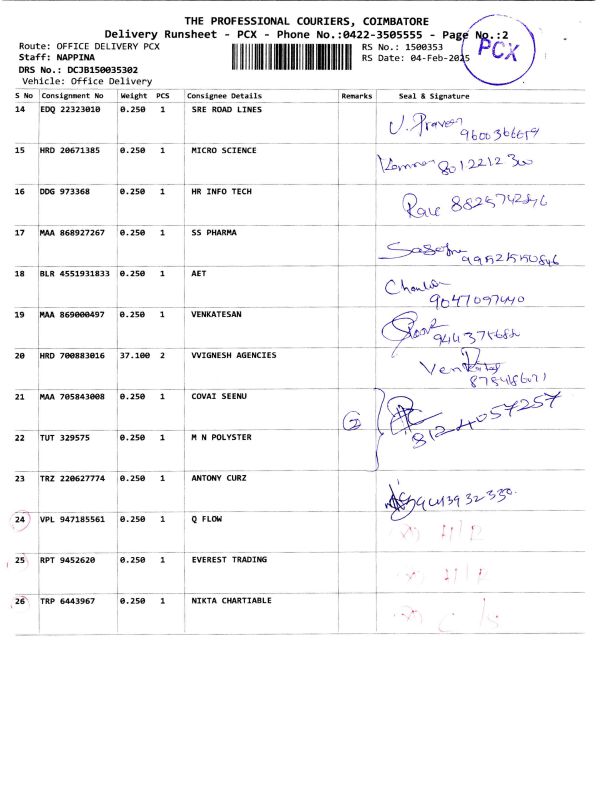 THE PROFESSIONAL COURIERS, COIMBATORE
Delivery Runsheet - PCX - Phone No.:0422-3505555 - Page No.:2
Route: OFFICE DELIVERY PCX
RS No.: 1500353
PCX
Staff: NAPPINA
RS Date: 04-Feb-2025
DRS No.: DCJB150035302
Vehicle: Office Delivery
S No Consignment No Weight PCS Consignee Details Remarks Seal & Signature
14 EDQ 22323010 0.250 1 SRE ROAD LINES
15 HRD 20671385 0.250 1 MICRO SCIENCE
16 DDG 973368 0.250 1 HR INFO TECH
17 MAA 868927267 0.250 1 SS PHARMA
18 BLR 4551931833 0.250 1 AET
9047097440
19 MAA 869000497 0.250 1 VENKATESAN
20 HRD 700883016 37.100 2 VVIGNESH AGENCIES
21 MAA 705843008 0.250 1 COVAI SEENU
2 8124057257
22 TUT 329575 0.250 1 M N POLYSTER
23 TRZ 220627774 0.250 1 ANTONY CURZ
24 VPL 947185561 0.250 1 Q FLOW
25 RPT 9452620 0.250 1 EVEREST TRADING
26 TRP 6443967 0.250 1 NIKTA CHARTIABLE